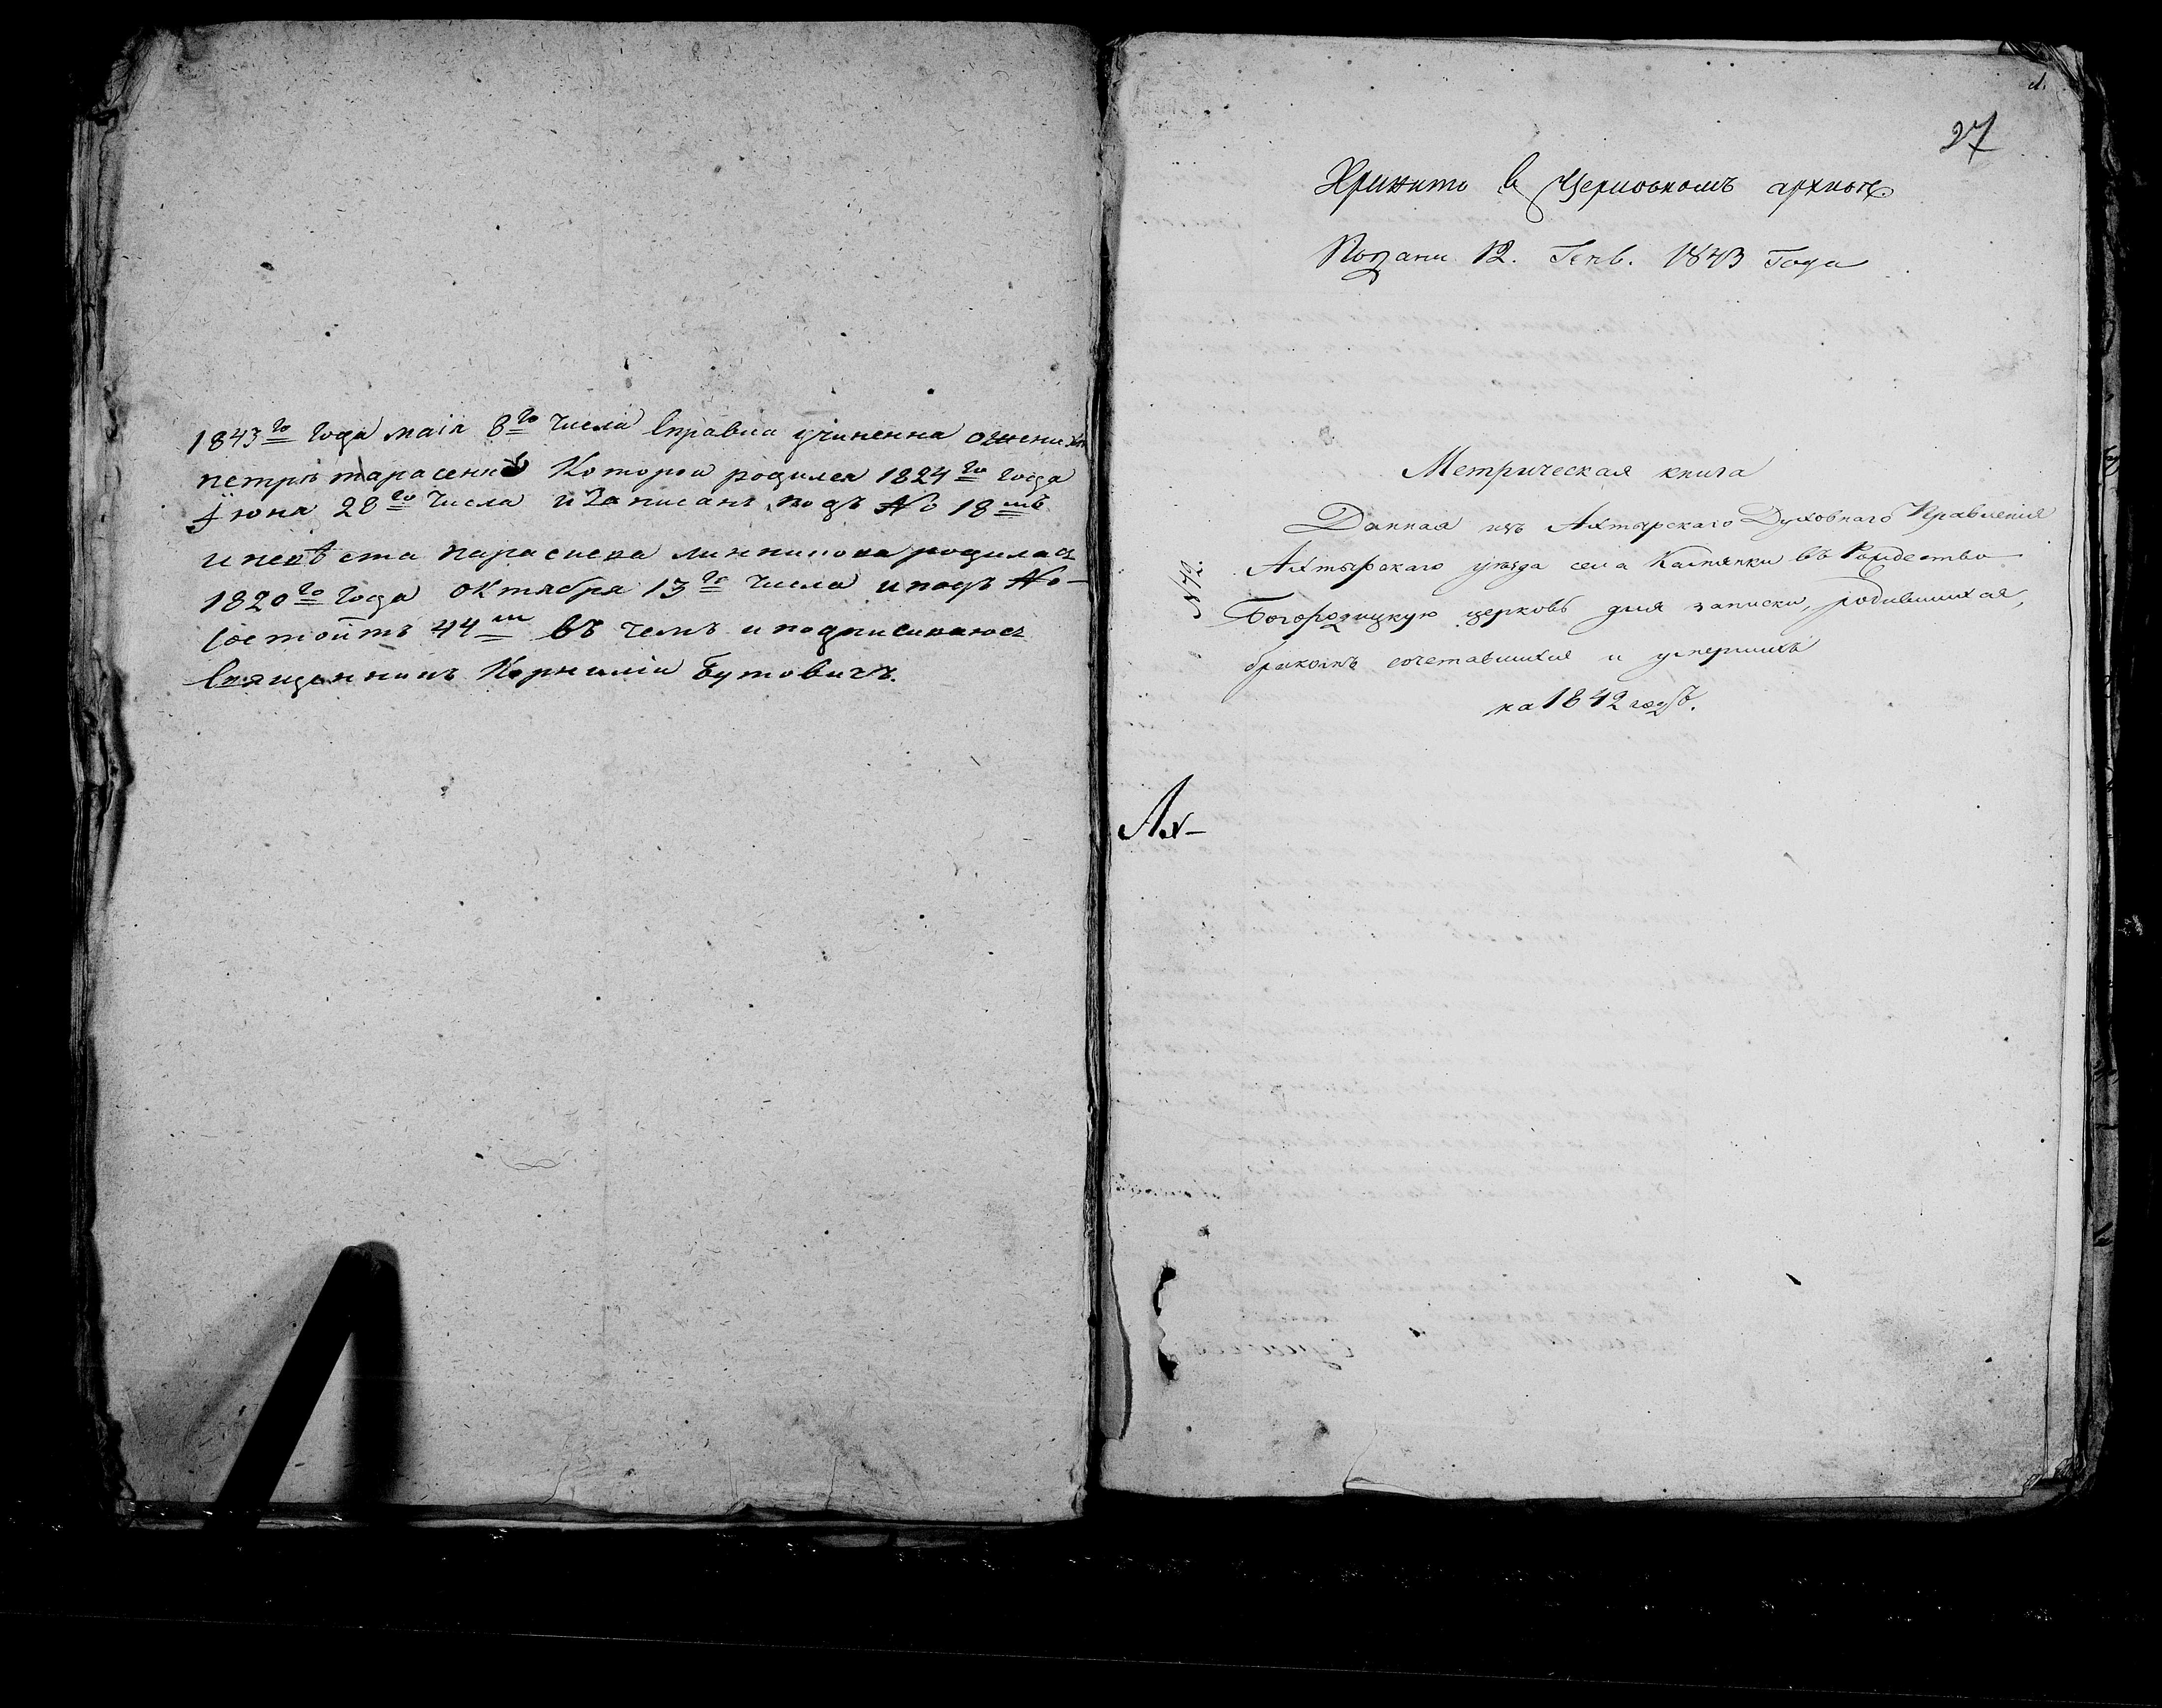 1843го Года маія 8го Числа Справка учиненна о жених
петръ тарасенко Которои родился 1824го Года
Їюня 28го Числа и Записанъ подъ №о 18мъ
и невѣста параскева линникова родилас
1820го Года Октября 13го Числа и подъ №о
Состоитъ 44м въ чемъ и подписиваюсъ
Священникъ Корнилій Бутовичъ.
1.
27
Хранить в Церковномъ архивѣ.
Подани 12. Генв. 1843 Года
Метрическая книга
Данная изъ Ахтырскаго Духовнаго Правленія
Ахтырскаго уѣзда села Каплянки въ Рождество
№72.
Богородицкую церковь для записки, родившихся,
бракомъ сочетавшихся и умершихъ
на 1842 годъ.
Ах-